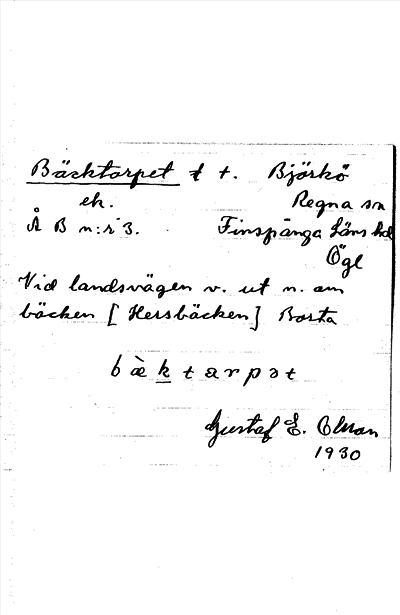 Bäcktorpet t t. Björkö
ek. Regna sn
Å B n:r 3. Finspånga Läns hd
Ögl
Vid landsvägen v. ut n. om
bäcken [Hersbäcken] Borta
bæ̀ktarpət
Gustaf E.
1930